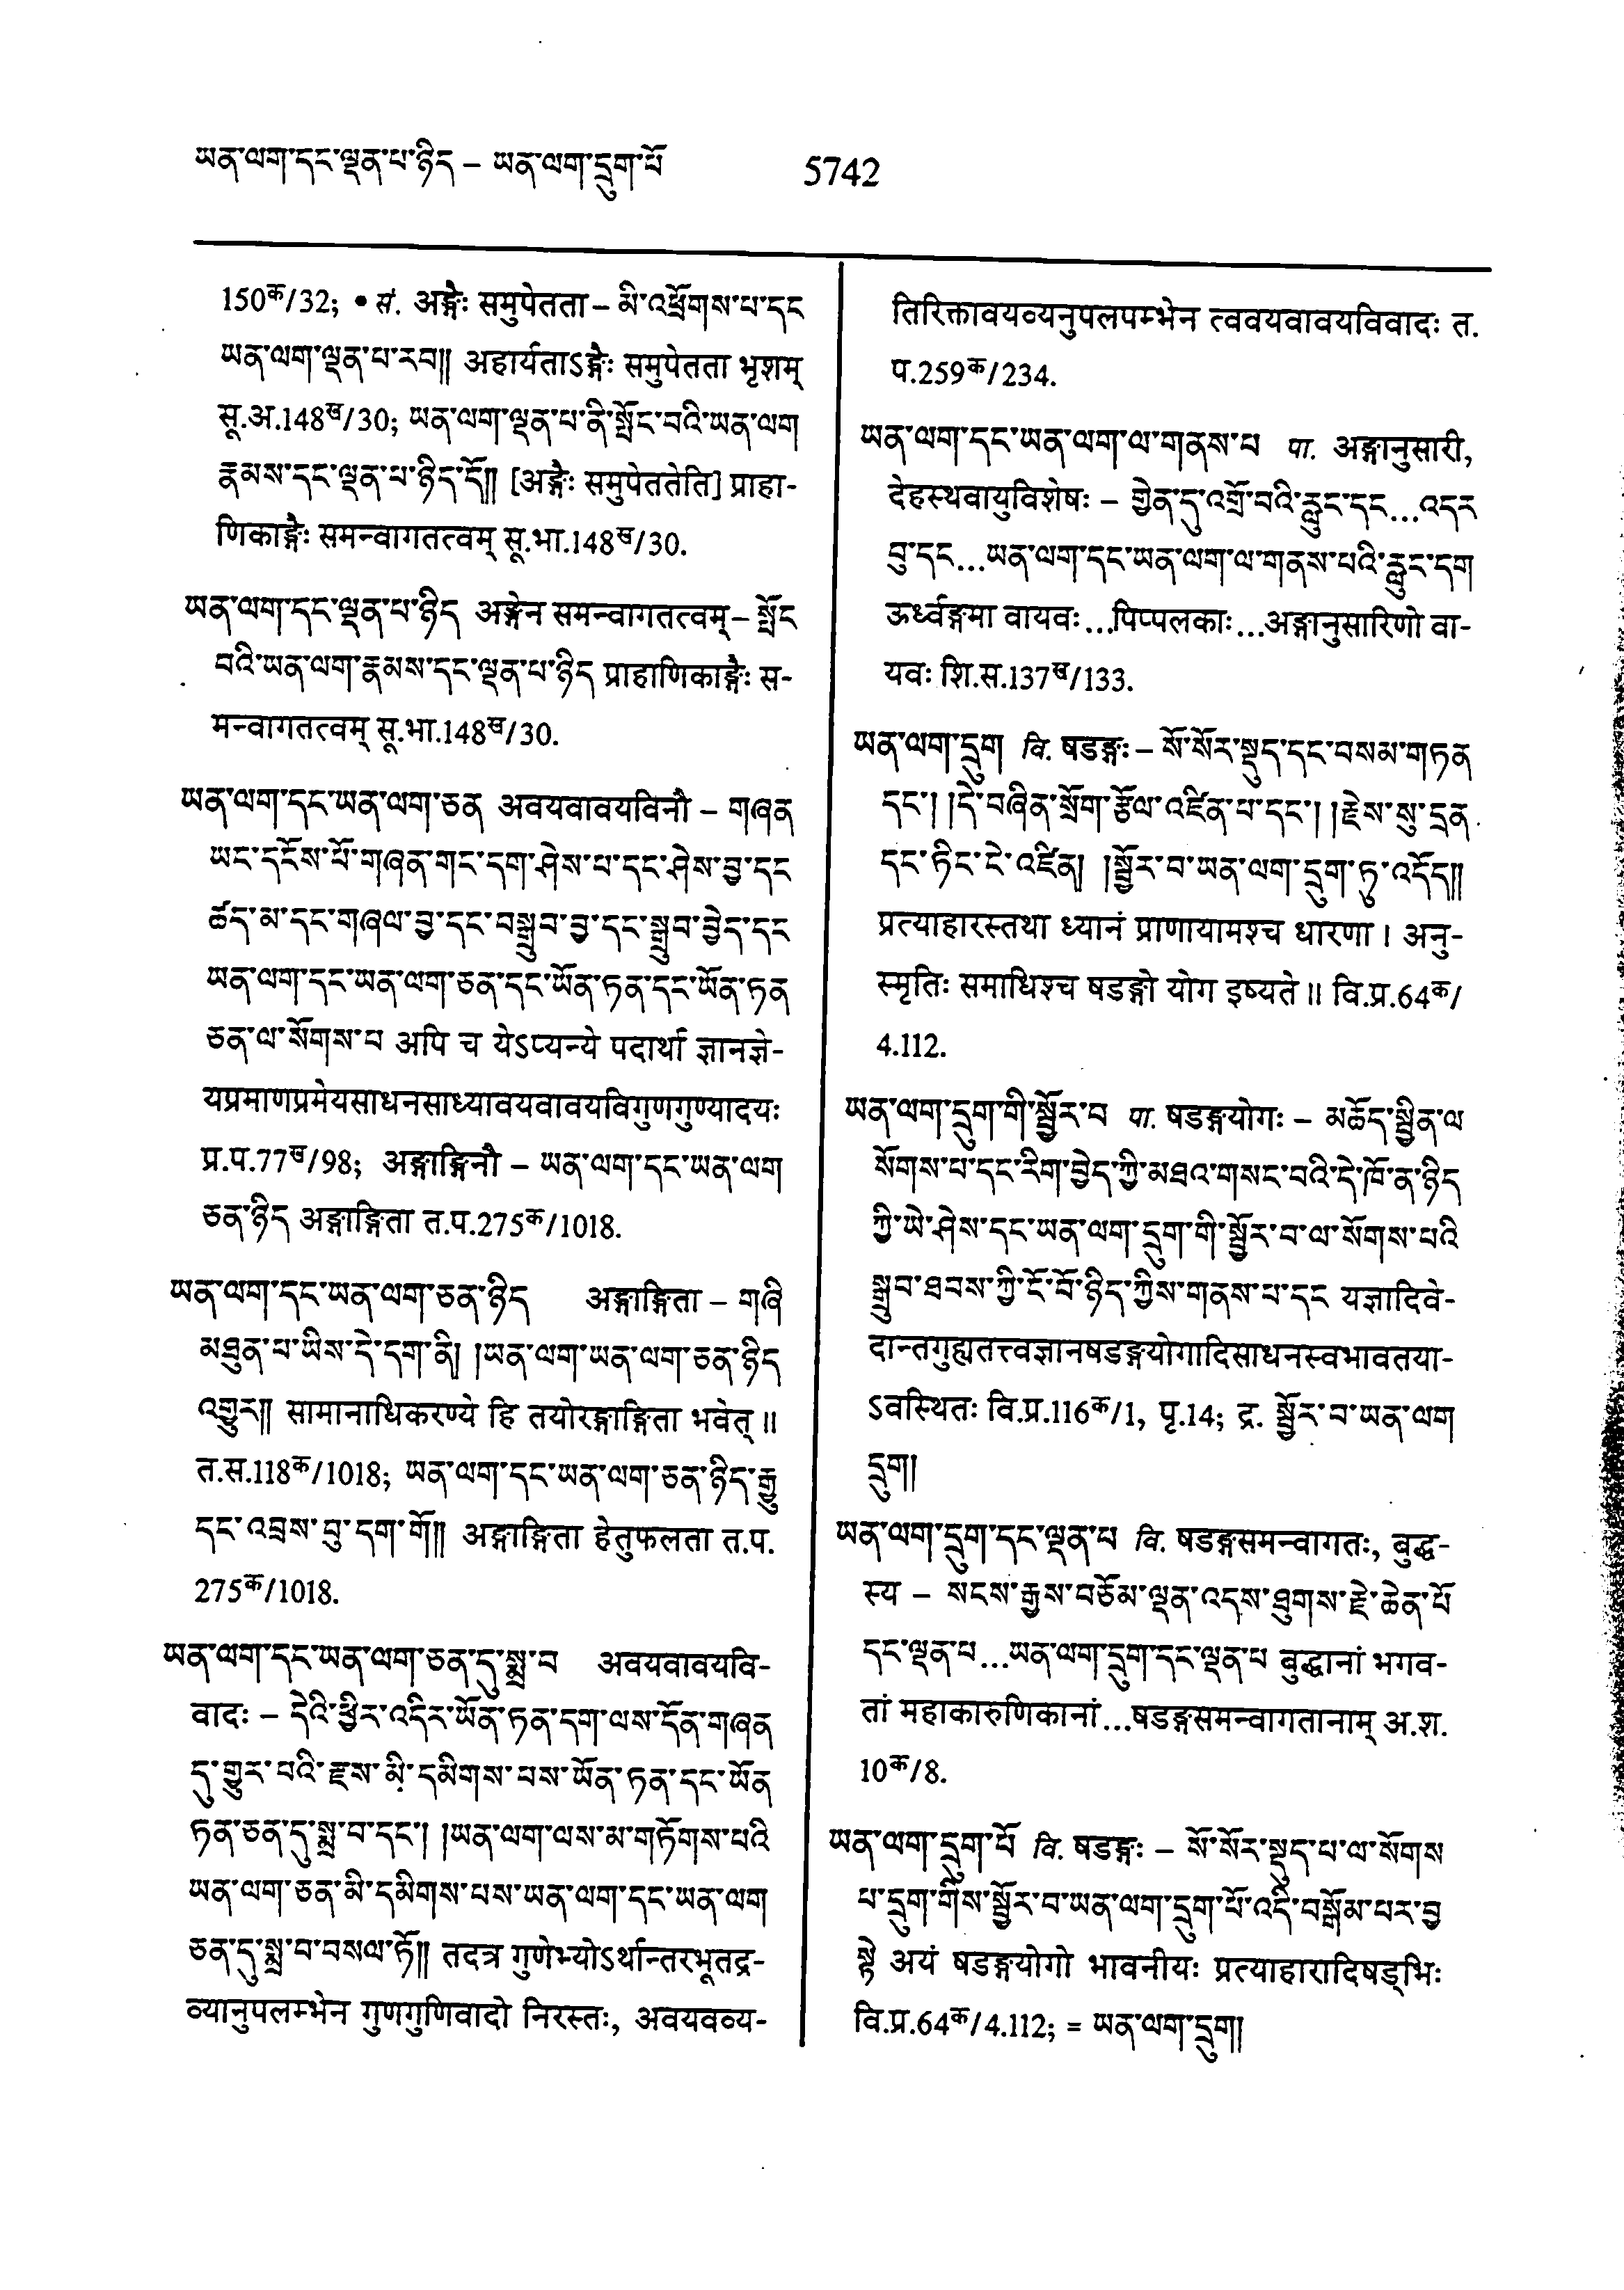 ཡན་ལག་དང་ལྡན་པ་ཉིད – ཡན་ལག་དྲུག་པོ
5742
150क/32; • सं. अङ्गैः समुपेतता – མི་འཕྲོགས་པ་དང
ཡན་ལག་ལྡན་པ་རབ།། अहार्यताऽङ्गैः समुपेतता भृशम्
सू.अ.148ख/30; ཡན་ལག་ལྡན་པ་ནི་སྤོང་བའི་ཡན་ལག
རྣམས་དང་ལྡན་པ་ཉིད་དོ།། [अङ्गैः समुपेततेति] प्राहा-
णिकाङ्गैः समन्वागतत्वम् सू.भा.148ख/30.
ཡན་ལག་དང་ལྡན་པ་ཉིད अङ्गेन समन्वागतत्वम् – སྤོང
བའི་ཡན་ལག་རྣམས་དང་ལྡན་པ་ཉིད प्राहाणिकाङ्गैः स-
मन्वागतत्वम् सू.भा.148ख/30.
ཡན་ལག་དང་ཡན་ལག་ཅན अवयवावयविनौ – གཞན
ཡང་དངོས་པོ་གཞན་གང་དག་ཤེས་པ་དང་ཤེས་བྱ་དང
ཚད་མ་དང་གཞལ་བྱ་དང་བསྒྲུབ་བྱ་དང་སྒྲུབ་བྱེད་དང
ཡན་ལག་དང་ཡན་ལག་ཅན་དང་ཡོན་ཏན་དང་ཡོན་ཏན
ཅན་ལ་སོགས་པ अपि च येऽप्यन्ये पदार्था ज्ञानज्ञे-
यप्रमाणप्रमेयसाधनसाध्यावयवावयविगुणगुण्यादयः
प्र.प.77ख/98; अङ्गाङ्गिनौ – ཡན་ལག་དང་ཡན་ལག
ཅན་ཉིད अङ्गाङ्गिता त.प.275क/1018.
ཡན་ལག་དང་ཡན་ལག་ཅན་ཉིད अङ्गाङ्गिता – གཞི
མཐུན་པ་ཡིས་དེ་དག་ནི། །ཡན་ལག་ཡན་ལག་ཅན་ཉིད
འགྱུར།། सामानाधिकरण्ये हि तयोरङ्गाङ्गिता भवेत् ॥
त.स.118क/1018; ཡན་ལག་དང་ཡན་ལག་ཅན་ཉིད་རྒྱུ
དང་འབྲས་བུ་དག་གོ།། अङ्गाङ्गिता हेतुफलता त.प.
275क/1018.
ཡན་ལག་དང་ཡན་ལག་ཅན་དུ་སྨྲ་བ अवयवावयवि-
वादः – དེའི་ཕྱིར་འདིར་ཡོན་ཏན་དག་ལས་དོན་གཞན
དུ་གྱུར་པའི་རྫས་མི་དམིགས་པས་ཡོན་ཏན་དང་ཡོན
ཏན་ཅན་དུ་སྨྲ་བ་དང་། །ཡན་ལག་ལས་མ་གཏོགས་པའི
ཡན་ལག་ཅན་མི་དམིགས་པས་ཡན་ལག་དང་ཡན་ལག
ཅན་དུ་སྨྲ་བ་བསལ་ཏོ།། तदत्र गुणेभ्योऽर्थान्तरभूतद्र-
व्यानुपलम्भेन गुणगुणिवादो निरस्तः, अवयवव्य-
तिरिक्तावयव्यनुपलपम्भेन त्ववयवावयविवादः त.
प.259क/234.
ཡན་ལག་དང་ཡན་ལག་ལ་གནས་པ पा. अङ्गानुसारी,
देहस्थवायुविशेषः – གྱེན་དུ་འགྲོ་བའི་རླུང་དང...འདར
བུ་དང...ཡན་ལག་དང་ཡན་ལག་ལ་གནས་པའི་རླུང་དག
ऊर्ध्वङ्गमा वायवः...पिप्पलकाः...अङ्गानुसारिणो वा-
यवः शि.स.137ख/133.
ཡན་ལག་དྲུག वि. षडङ्गः – སོ་སོར་སྡུད་དང་བསམ་གཏན
དང་། །དེ་བཞིན་སྲོག་རྩོལ་འཛིན་པ་དང་། །རྗེས་སུ་དྲན
དང་ཏིང་ངེ་འཛིན། །སྦྱོར་བ་ཡན་ལག་དྲུག་ཏུ་འདོད།།
प्रत्याहारस्तथा ध्यानं प्राणायामश्च धारणा । अनु-
स्मृतिः समाधिश्च षडङ्गो योग इष्यते ॥ वि.प्र.64क/
4.112.
ཡན་ལག་དྲུག་གི་སྦྱོར་བ पा. षडङ्गयोगः – མཆོད་སྦྱིན་ལ
སོགས་པ་དང་རིག་བྱེད་ཀྱི་མཐའ་གསང་བའི་དེ་ཁོ་ན་ཉིད
ཀྱི་ཡེ་ཤེས་དང་ཡན་ལག་དྲུག་གི་སྦྱོར་བ་ལ་སོགས་པའི
སྒྲུབ་ཐབས་ཀྱི་ངོ་བོ་ཉིད་ཀྱིས་གནས་པ་དང यज्ञादिवे-
दान्तगुह्यतत्त्वज्ञानषडङ्गयोगादिसाधनस्वभावतया-
ऽवस्थितः वि.प्र.116क/1, पृ.14; द्र. སྦྱོར་བ་ཡན་ལག
དྲུག།
ཡན་ལག་དྲུག་དང་ལྡན་པ वि. षडङ्गसमन्वागतः, बुद्ध-
स्य – སངས་རྒྱས་བཅོམ་ལྡན་འདས་ཐུགས་རྗེ་ཆེན་པོ
དང་ལྡན་པ...ཡན་ལག་དྲུག་དང་ལྡན་པ बुद्धानां भगव-
तां महाकारुणिकानां...षडङ्गसमन्वागतानाम् अ.श.
10क/8.
ཡན་ལག་དྲུག་པོ वि. षडङ्गः – སོ་སོར་སྡུད་པ་ལ་སོགས
པ་དྲུག་གིས་སྦྱོར་བ་ཡན་ལག་དྲུག་པོ་འདི་བསྒོམ་པར་བྱ
སྟེ अयं षडङ्गयोगो भावनीयः प्रत्याहारादिषड्भिः
वि.प्र.64क/4.112; = ཡན་ལག་དྲུག།